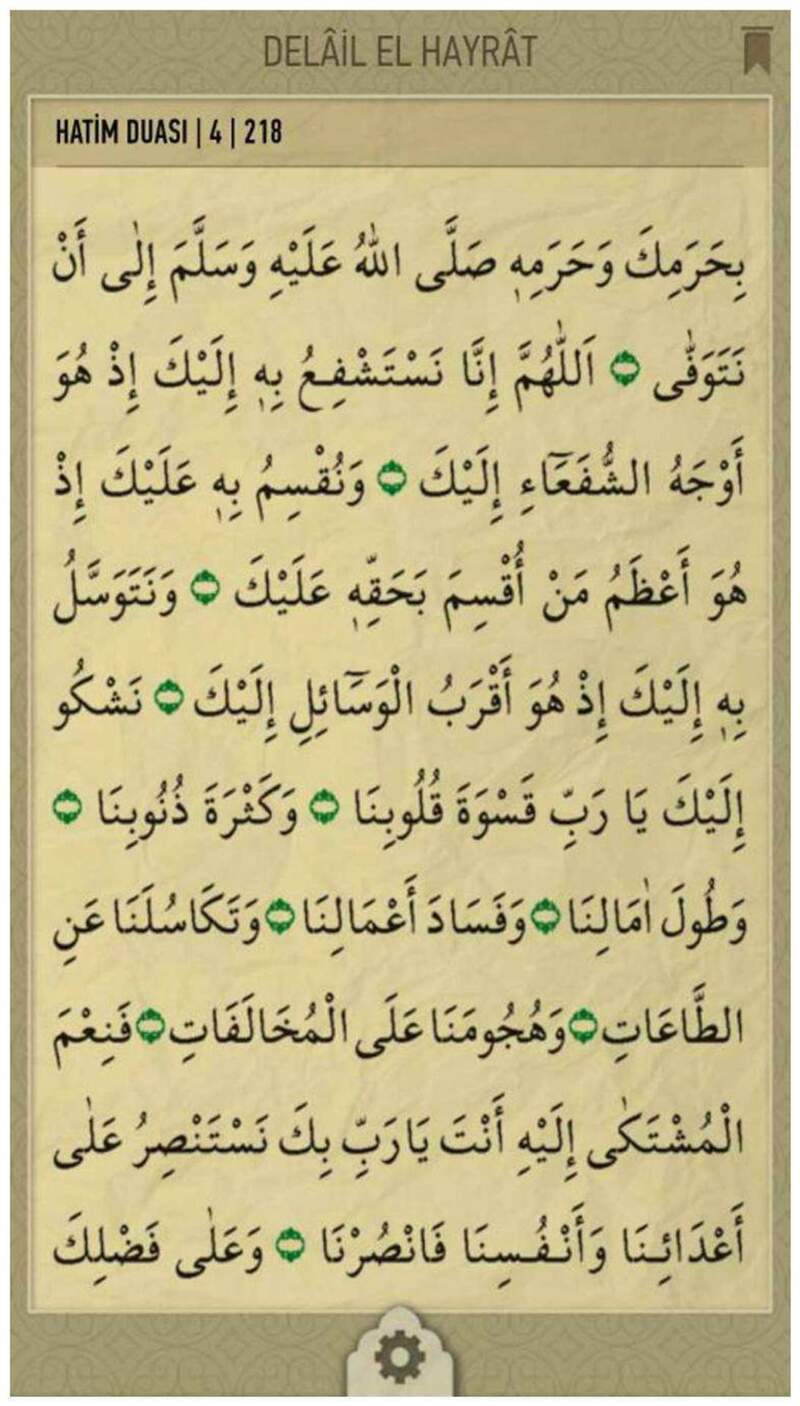 DELÂİL EL HAYRÂT
HATİM DUASI | 4 | 218
بِحَرَمِكَ وَحَرَمِهٖ صَلَّى اللهُ عَلَيْهِ وَسَلَّمَ إِلٰى أَنْ
نَتَوَفّٰى ۝ اَللّٰهُمَّ إِنَّا نَسْتَشْفِعُ بِهٖ إِلَيْكَ إِذْ هُوَ
أَوْجَهُ الشُّفَعَٓاءِ إِلَيْكَ ۝ وَنُقْسِمُ بِهٖ عَلَيْكَ إِذْ
هُوَ أَعْظَمُ مَنْ أُقْسِمَ بَحَقِّهٖ عَلَيْكَ ۝ وَنَتَوَسَّلُ
بِهٖ إِلَيْكَ إِذْ هُوَ أَقْرَبُ الْوَسَٓائِلِ إِلَيْكَ ۝ نَشْكُو
إِلَيْكَ يَا رَبِّ قَسْوَةَ قُلُوبِنَا ۝ وَكَثْرَةَ ذُنُوبِنَا ۝
وَطُولَ اٰمَالِنَا ۝ وَفَسَادَ أَعْمَالِنَا ۝ وَتَكَاسُلَنَا عَنِ
الطَّاعَاتِ ۝ وَهُجُومَنَا عَلَى الْمُخَالَفَاتِ ۝ فَنِعْمَ
الْمُشْتَكٰى إِلَيْهِ أَنْتَ يَارَبِّ بِكَ نَسْتَنْصِرُ عَلٰى
أَعْدَائِنَا وَأَنْفُسِنَا فَانْصُرْنَا ۝ وَعَلٰى فَضْلِكَ